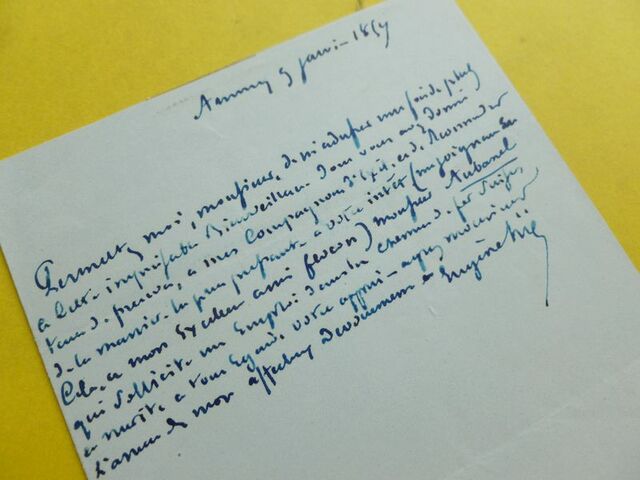 Annecy 9 janv- 1857
Permettez moi, monsieur, de m'adresser une fois de plus
à cette inépuisable Bienveillance dont vous avez donné
tant de preuves, à mes Compagnons d'Exil, et de recommander
de la manière la plus pressante à votre intérêt (en joignant à
Cela, ce mon Excellent ami ) monsieur Aubanel
qui sollicite un Emploi dans les chemins de fer Suisses
et mérite à tous Egards votre appui - agréez monsieur
l'assurance de mon affectueux dévouement Eugène Sue